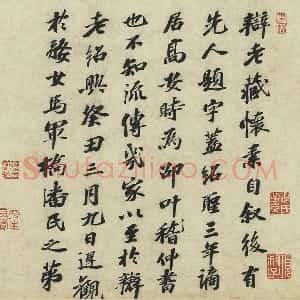 辯老藏懷素自叙後有
先人題字蓋紹聖三年謫
居高安時爲邵叶稽仲書
也不知流傳幾家以至於辯
老紹興癸丑三月九日遲觀
於婺女馬軍橋潘氏之第